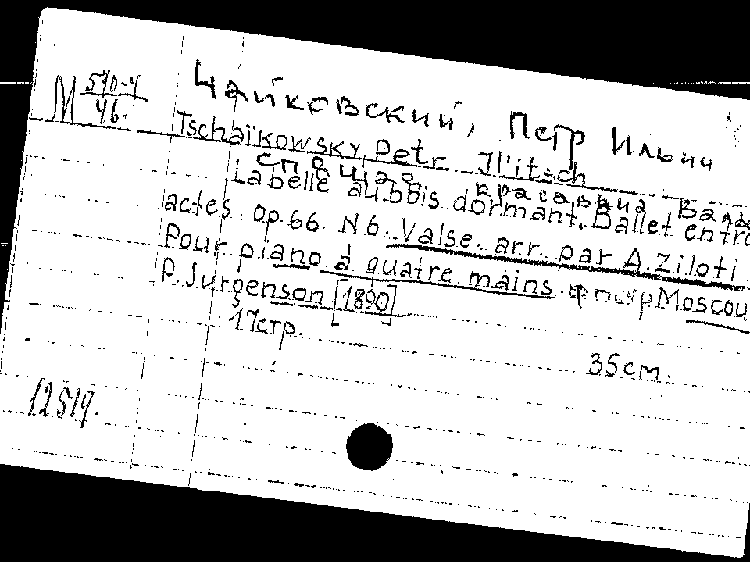 Чайковский, Петр Ильич
М 510-4
46.
Tschaïkowsky, Petr Jl'itsch
Спящая красавица Валь
La belle au bois dormant. Ballet en tro
actes. Op. 66. N 6. Valse. arr. par A. Ziloti
Pour piano à quatre mains. Moscou
P. Jurgenson [1890]
17стр.
35см.
12519.